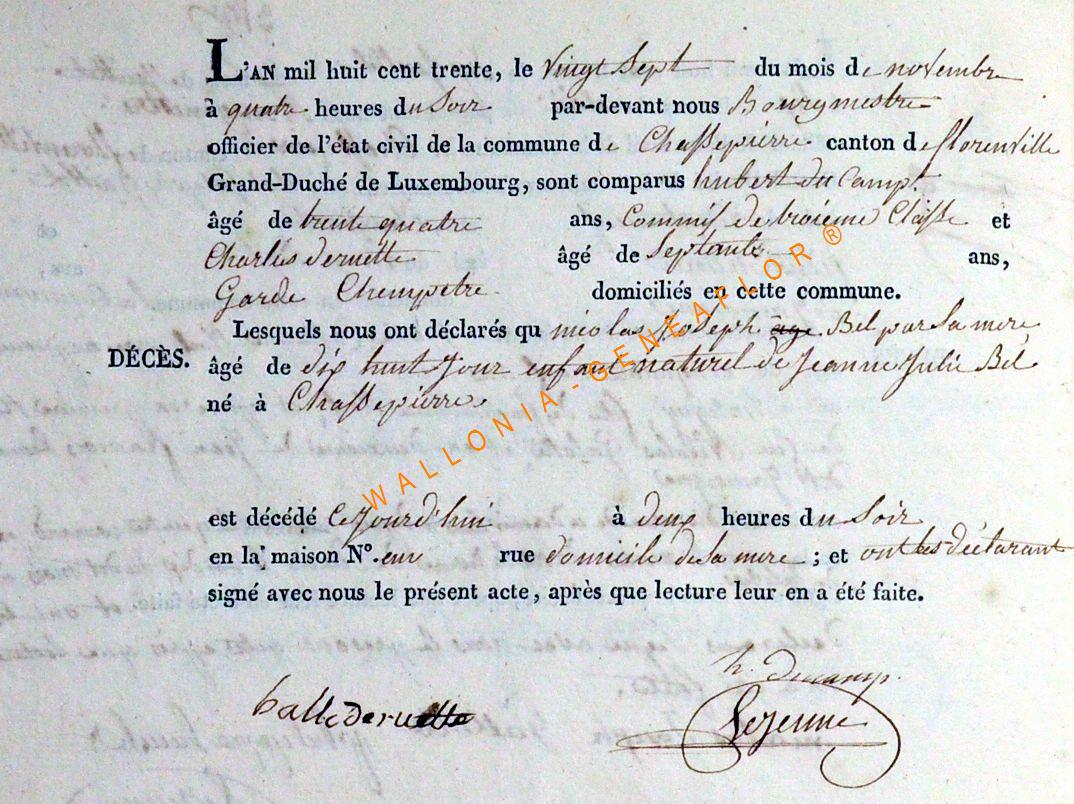 L'AN mil huit cent trente, le vingt sept du mois de novembre
à quatre heures du Soir par-devant nous Bourgmestre
officier de l'état civil de la commune de Chassepierre canton de florenville
Grand-Duché de Luxembourg, sont comparus hubert du Camp.
âgé de trente quatre ans, Commis de troieme Classe et
Charles deruette âgé de Septante ans,
Garde Chempetre domiciliés en cette commune.
Lesquels nous ont déclarés qu nicolas Joseph âge Bel par Sa mere
DÉCÈS. âgé de dix huit Jour enfant naturel de Jeanne Julie Bel
né à Chassepierre
est décédé Cejourd'hui à deux heures du Soir
en la maison N°. rue domicile de Sa mere ; et ont les déclarant
signé avec nous le présent acte, après que lecture leur en a été faite.
h. ducamp.
Lejeune
WALLONIA-GENEAFLOR®